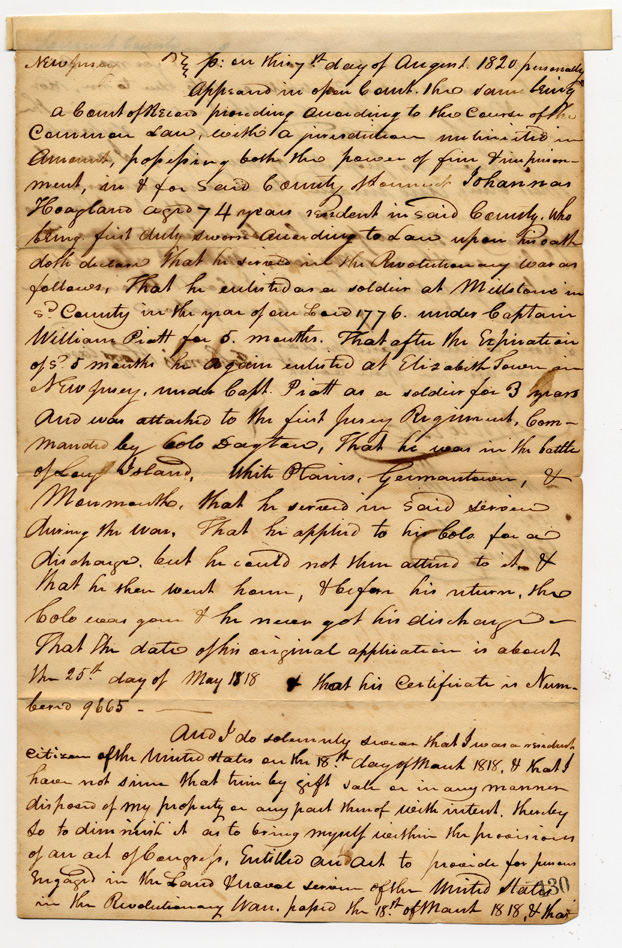 New Jersey ss: on this 7th day of August 1820 personally
Appeared in open Court the same being
a Court of Record proceding according to the Course of the
Common Law, with a jurisdiction unlimited in
Amount, possessing both the power of fine & imprison-
ment, in & for said County of Somerset Johannas
Hoagland aged 74 years resident in said County. Who
being first duly sworn according to Law upon his oath
doth declare that he served in the Revolutionary War as
follows, That he enlisted as a soldier at Millstone in
sd. County in the year of our Lord 1776. under Captain
William Piatt for 5. months. That after the Expiration
of sd. 5 months he again enlisted at Elizabeth Town in
New Jersey, under Capt. Piatt as a soldier for 3 years
And was attached to the first Jersey Regiment, Com-
manded by Colo Dayton, That he was in the battle
of Long Island, White Plains, Germantown, &
Monmouth, that he served in said service
during the war, That he applied to his Colo for a
discharge. but he could not then attend to it. &
that he then went home, & before his return, the
Colo was gone & he never got his discharge –
That the date of his original application is about
the 25th day of May 1818 & that his Certificate is Num-
berd 9665 -
And I do solemnly swear that I was a resident
citizen of the United States on the 18th day of March 1818, & that I
have not since that time by gift sale or in any manner
disposed of my property or any part thereof with intent, thereby
so to diminish it as to bring myself within the provisions
of an act of Congress, Entitled an act to provide for persons
Engaged in the Land & naval service of the United States
in the Revolutionary War. passed the 18th of March 1818, & that
430